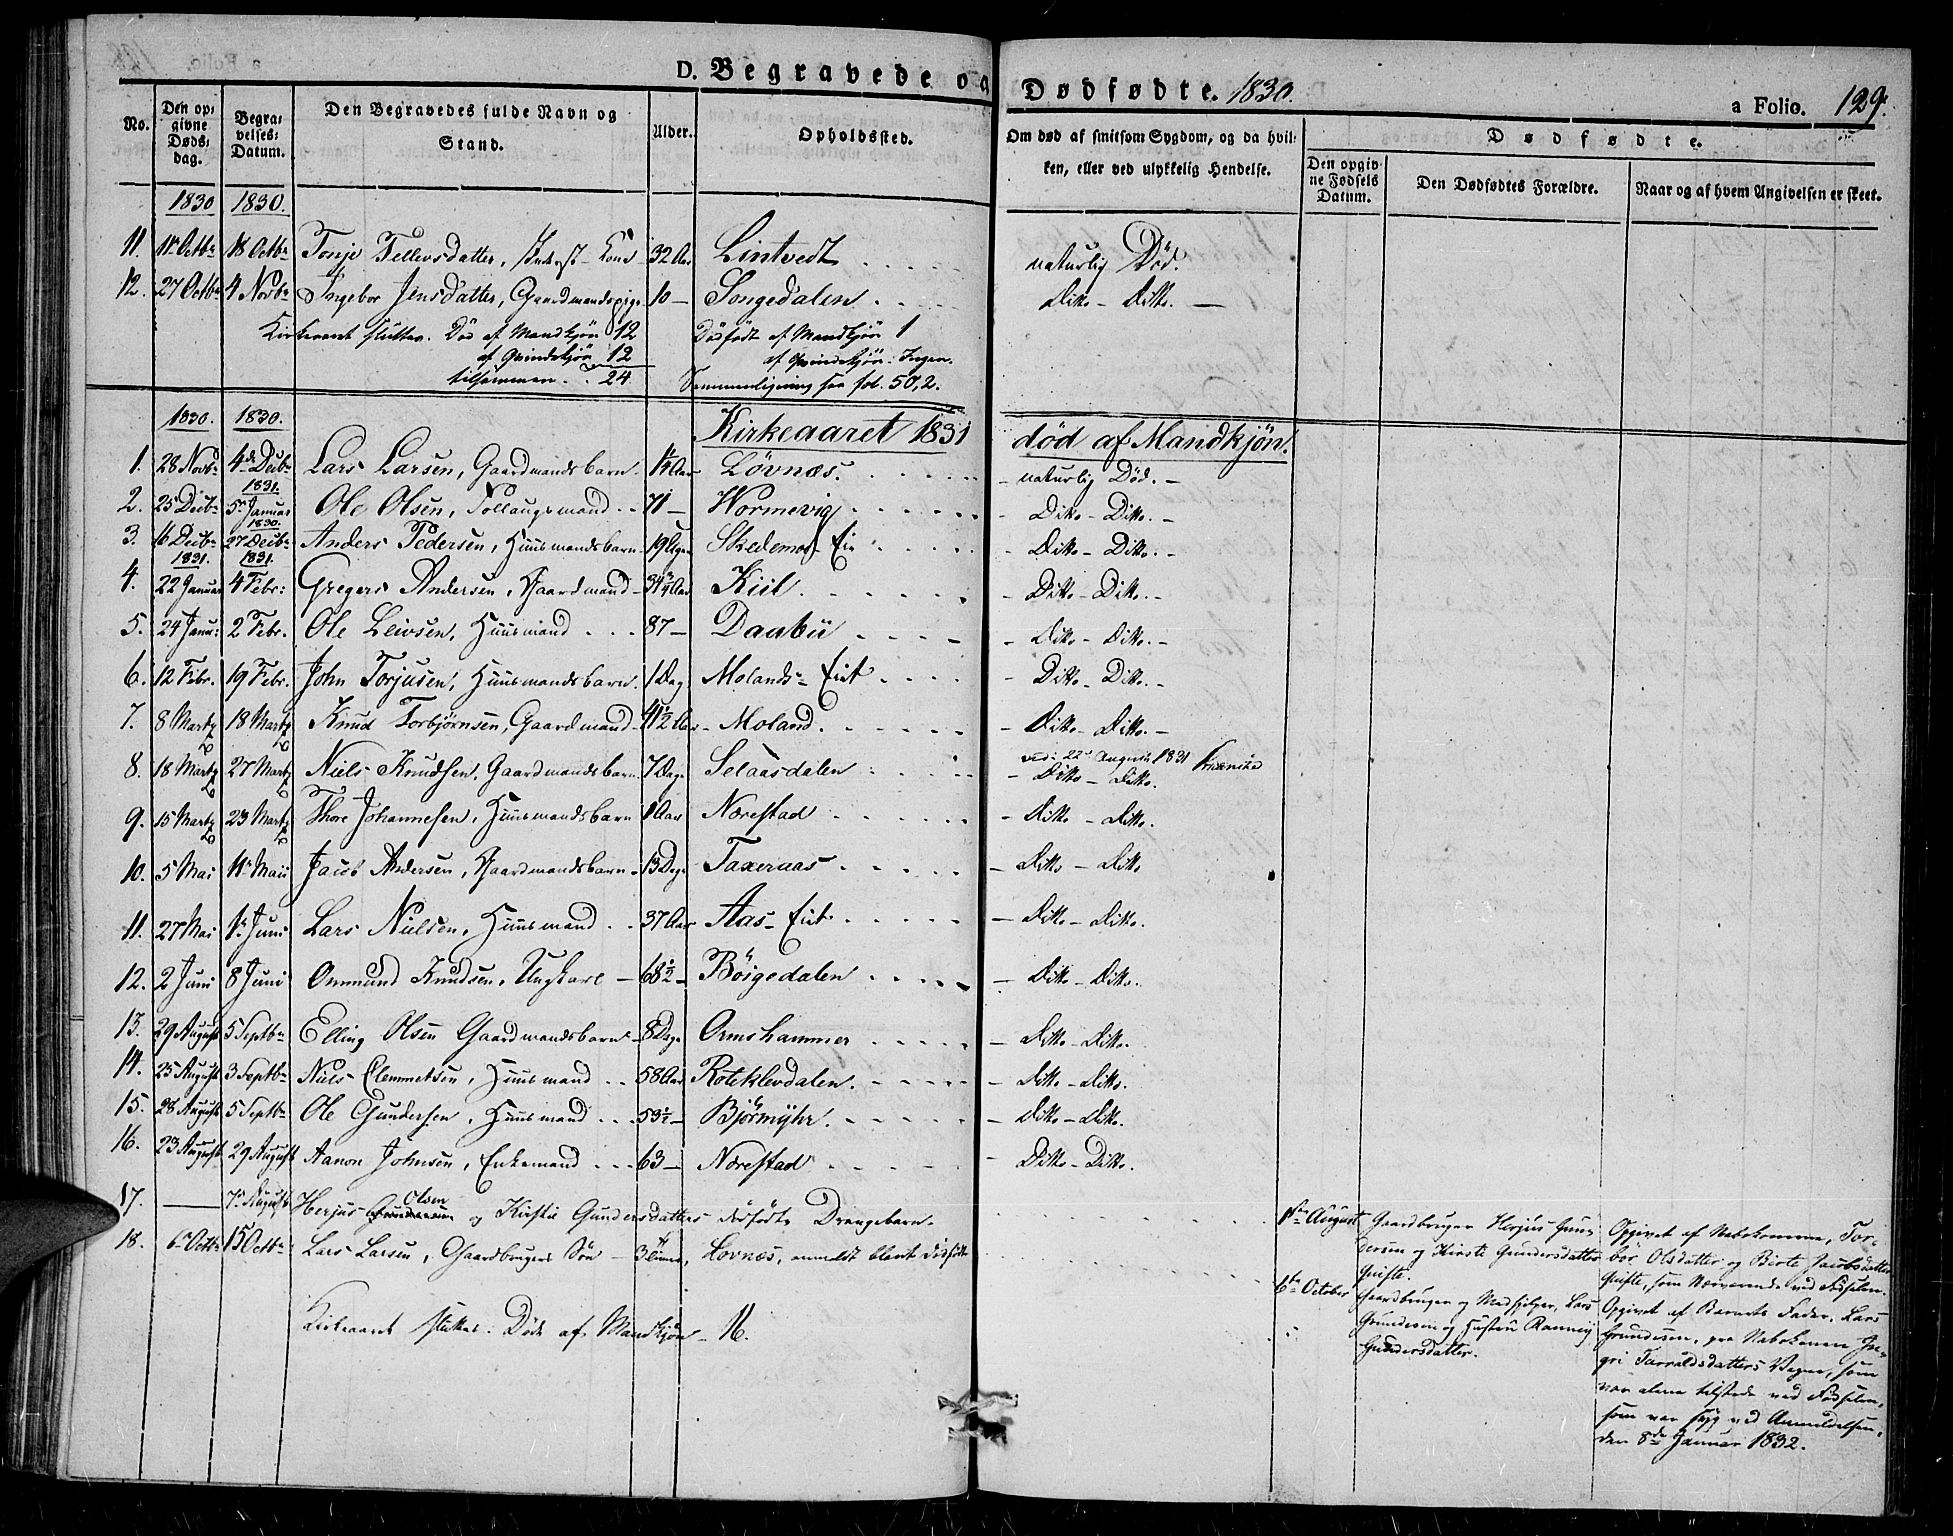 D. Begravede og Dødfødte. 1830. a Folio. 129.
No. | Den opgivne Dødsdag. | Begravelses: Datum. | Den Begravedes fulde Navn og Stand. | Alder. | Opholdssted. | Om død af smitsom Sygdom, og da hvilken, eller ved ulykkelig Hendelse. | Dødfødte.
Den opgivne Fødsels Datum. | Den Dødfødtes Forældre. | Naar og af hvem Angivelsen er skeet.
1830 1830.
11. 11 Octbr 18 Octbr Tonje Tellevsdatter, Kone 32 Aar Lintvedt naturlig Død.
12. 27 Octbr 4 Novbr Ingebor Jensdatter, Gaardmandspige 10 — Songedalen Ditto - Ditto. —
Kirkeaaret sluttes. Død af Mandkjøn 12 Dødfødt af Mandkjøn 1
af Qvindekjøn 12 af Qvindekjøn: Ingen.
tilsammen . . 24 Sammenligning see fol. 50,2.
1830. 1830. Kirkeaaret 1831 død af Mandkjøn.
1. 28 Novb 4de Decbr Lars Larsen, Gaardmandsbarn Løvnæs. - naturlig Død. -
2. 25 Decbr 1831. 5 Januar Ole Olsen, Follaugsmand 71 - Wormevig - Ditto - Ditto. -
3. 16 Decbr 1830. 27 Decbr Anders Pedersen, Huusmandsbarn 19 Uger Skedemos Eie - Ditto - Ditto. -
1831. 1831.
4. 22 Januar 4 Febr: Gregers Andersen, Gaardmand Kiil. - Ditto - Ditto. -
5. 24 Janu: 2 Febr. Ole Leivsen, Huusmand 87 - Daabu - Ditto - Ditto. -
6. 12 Febr. 19 Febr. John Torjusen, Huusmandsbarn. 1 Dag Molands- Eiet - Ditto - Ditto. -
7. 8 Martz 18 Martz Knud Torbjørnsen, Gaardmand 41½ Aar - Moland. - Ditto - Ditto. -
8. 18 Martz 27 Martz Niels Knudsen, Gaardmandsbarn 7 Dage Selaasdalen - Ditto - Ditto.
vid: 22d August 1831
9. 15 Martz 23 Martz Thore Johannesen, Huusmandsbarn 1 Aar Nærestad - Ditto - Ditto.
10. 5 Mai 11 Maii Jacob Andersen, Gaardmandsbarn 13 Dage Taxeraas - Ditto - Ditto
11. 27 Mai 1 Juni Lars Nielsen, Huusmand 37 Aar Aas- Eiet - Ditto - Ditto.
12. 2 Juni 8 Juni Ommund Knudsen, Ungkarl - 68½ - Böigedalen - Ditto - Ditto.
13. 29 August 5 Septbr Elling Olsen Gaardmandsbarn 8 Dage Ormshammer - Ditto - Ditto.
14. 25 August 3 Septbr Niels Clemmetsen, Huusmand 58 Aar Roteklevdalen. - Ditto - Ditto.
15. 28 August 5 Septbr Ole Gundersen, Huusmand 53½ - Bjørmyhr. - Ditto - Ditto.
16. 23 August 29 August Aanon Johnsen, Enkemand 63 - Nærestad - Ditto - Ditto.
17. — 7 August Herjus Olsen og Kirstie Gundersdatters dødfødte Drengebarn.
1ste August Gaardbruger Herjus Gundersen og Kirste Gundersdatter Qvifte. Opgivet af Nabokonerne, Torbor Olsdatter og Birte Jacobsdatter Qvifte, som Nærværende ved Fødselen.
18. 6 Octbr 15 Octbr Lars Larsen, Gaardbrugers Søn - Lovnæs, anmeldt blant dødfødte
6te October Gaardbruger og Medhjelper, Lars Gundersen og Hustru Ranney Gundersdatter. Opgivet af Barnets Fader, Lars Gundersen, paa Nabokonen Ingri Tarraldsdatters Vegne, som var alene tilstede ved Fødselen, som var syg ved Anmeldelsen, den 8de Januar 1832.
Kirkeaaret sluttes: Døde af Mandkjøn - 16.